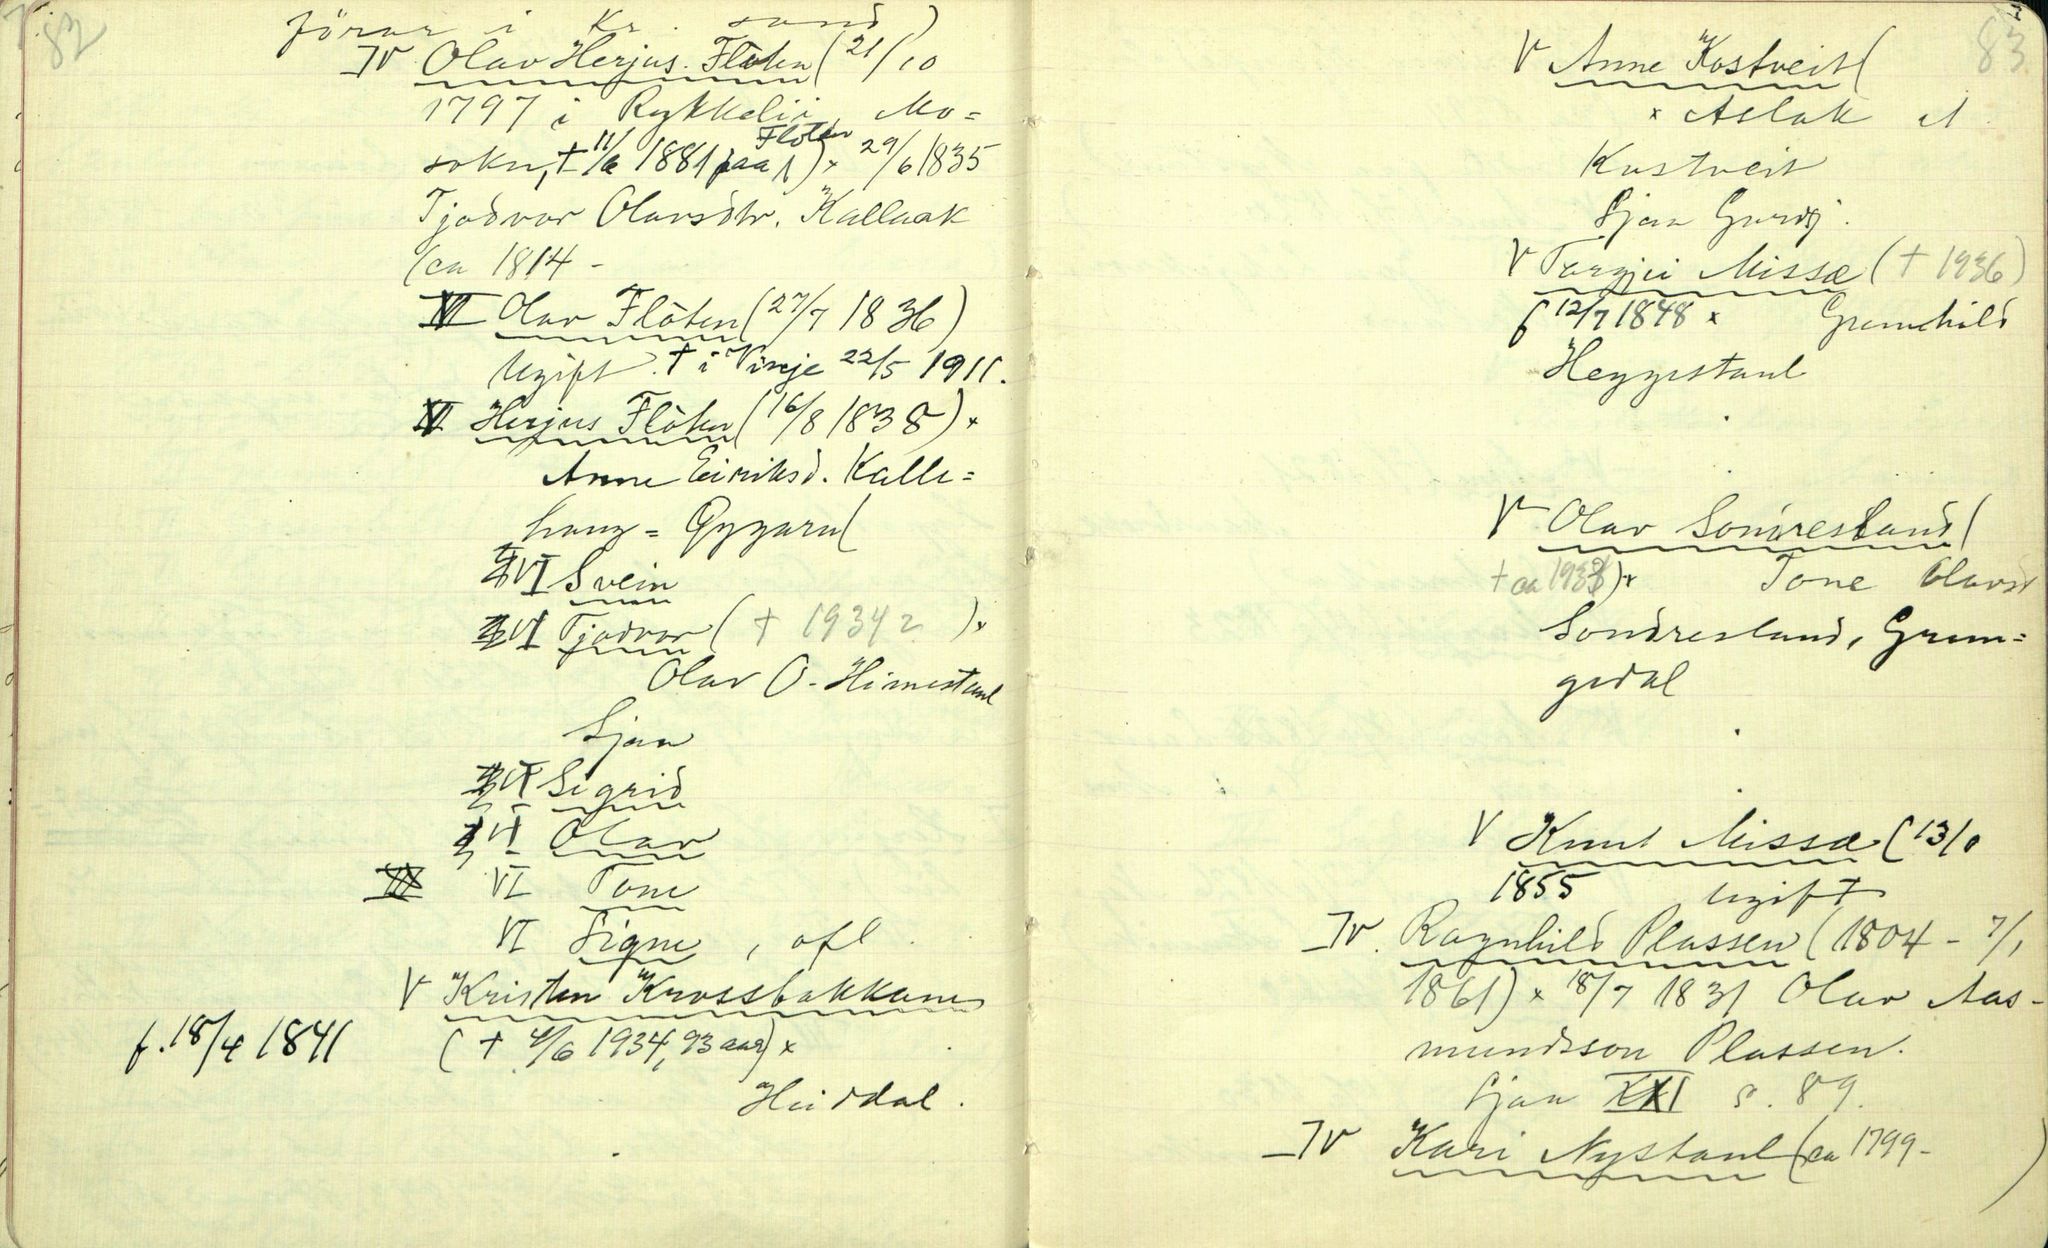 82
förar i Kr. sand)
IV Olav Herjus. Flöten (21/10
1797 i Rykkelii, Mo=
Flöten
sokn, † 11/6 1881 paa) × 29/6 1835
Tjodvor Olavsdtr. Kallaak
(ca 1814 -
VI Olav Flöten (27/7 1836)
Ugift. † i Vinje 22/5 1911.
V Herjus Flöten (16/8 1838) ×
Anne Eiriksd. Kalle=
haug =
VI Svein
VI Tjodvor († 1934 ) ×
Olav O. Himestaul
Sjaa
VI Sigrid
VI Olav
VI Tone
VI Signe, ofl.
V Kristen Krossbakkane
f. 18/4 1841
( † 4/6 1934, 93 aar) ×
Heiddal.
83
V Anne Kostveit (
× Aslak
Kostveit
Sjaa
V Targjei Missæ († 1936)
f 12/7 1848 × Gunnhild
Heggestaul
V Olav Sondresland (
† ca 193 ) × Tone Olavsd
Sondresland, Grun=
gedal
V Knut Missæ (13/
1855 Ugift
IV. Ragnhild Plassen (1804 - 7/1
1861) × 18/7 1831 Olav Aas-
mundsson Plassen.
Sjaa XXI s. 89.
IV Kari Nystaul (ca 1799 - )